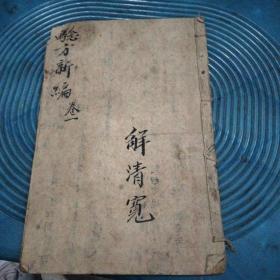 驗方新編 卷一
解清寬